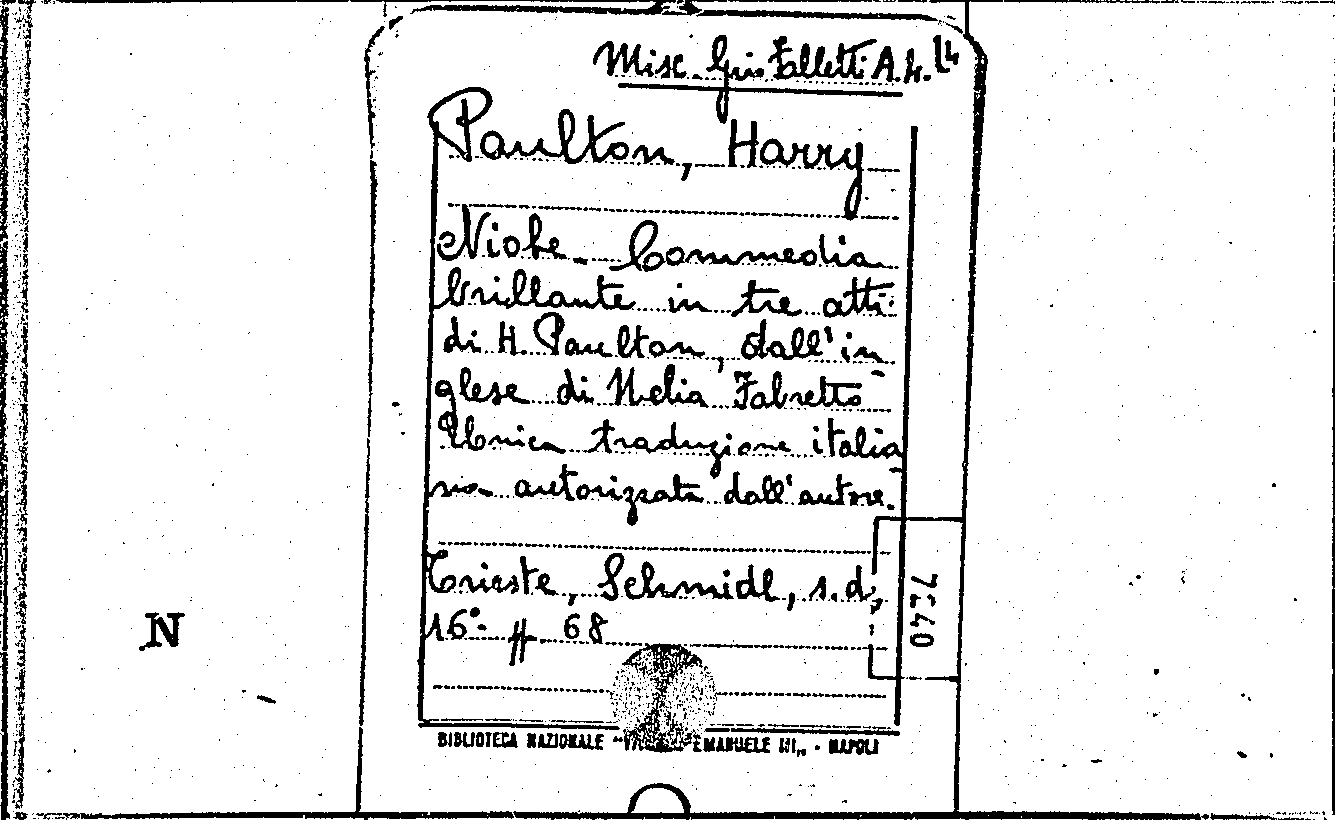 Misc. Gin. Falletti A.4.14
Paulton, Harry
Niobe. Commedia
brillante in tre atti
di H. Paulton, dall'in
glese di Melia Fabretto
Unica traduzione italia
na autorizzata dall'autore.
Trieste, Schmidl, s.d.,
16°. pp. 68
7240
N
BIBLIOTECA NAZIONALE EMANUELE III„ - NAPOLI